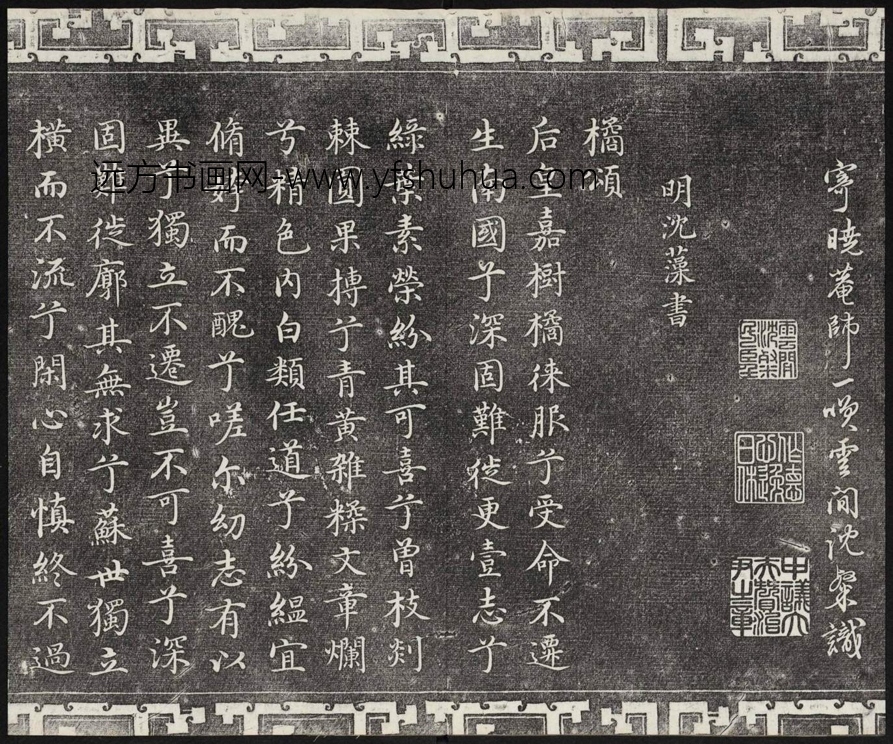 寄曉菴師一雲間沈粲識
雲間沈粲民望
作德心逸日休
中議大夫贊治尹之章
明沈藻書
橘頌
后皇嘉樹橘徠服兮受命不遷
生南國兮深固難徙更壹志兮
綠葉素榮紛其可喜兮曾枝剡
棘圓果摶兮青黃雜糅文章爛
兮精色內白類任道兮紛緼宜
脩姱而不醜兮嗟尔幼志有以
異兮獨立不遷豈不可喜兮深
固難徙廓其無求兮蘇世獨立
橫而不流兮閑心自慎終不過
远方书画网-www.yfshuhua.com